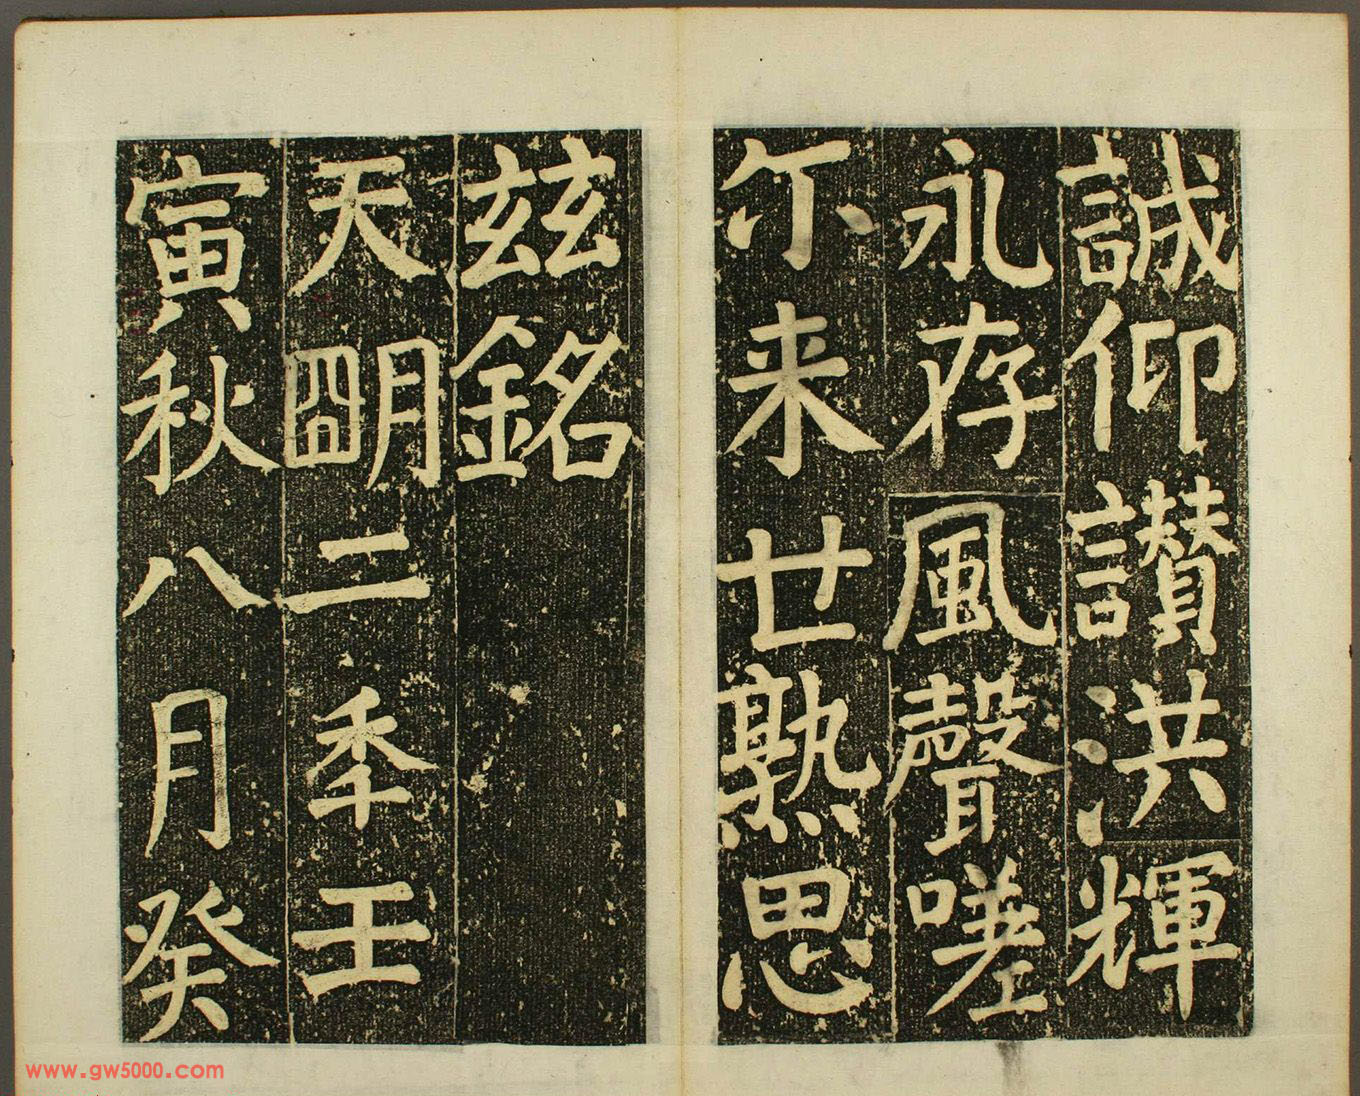 誠仰讃洪輝
永存風聲嗟
尒来廿熟思
玆銘
天朙二秊壬
寅秋八月癸
www.gw5000.com